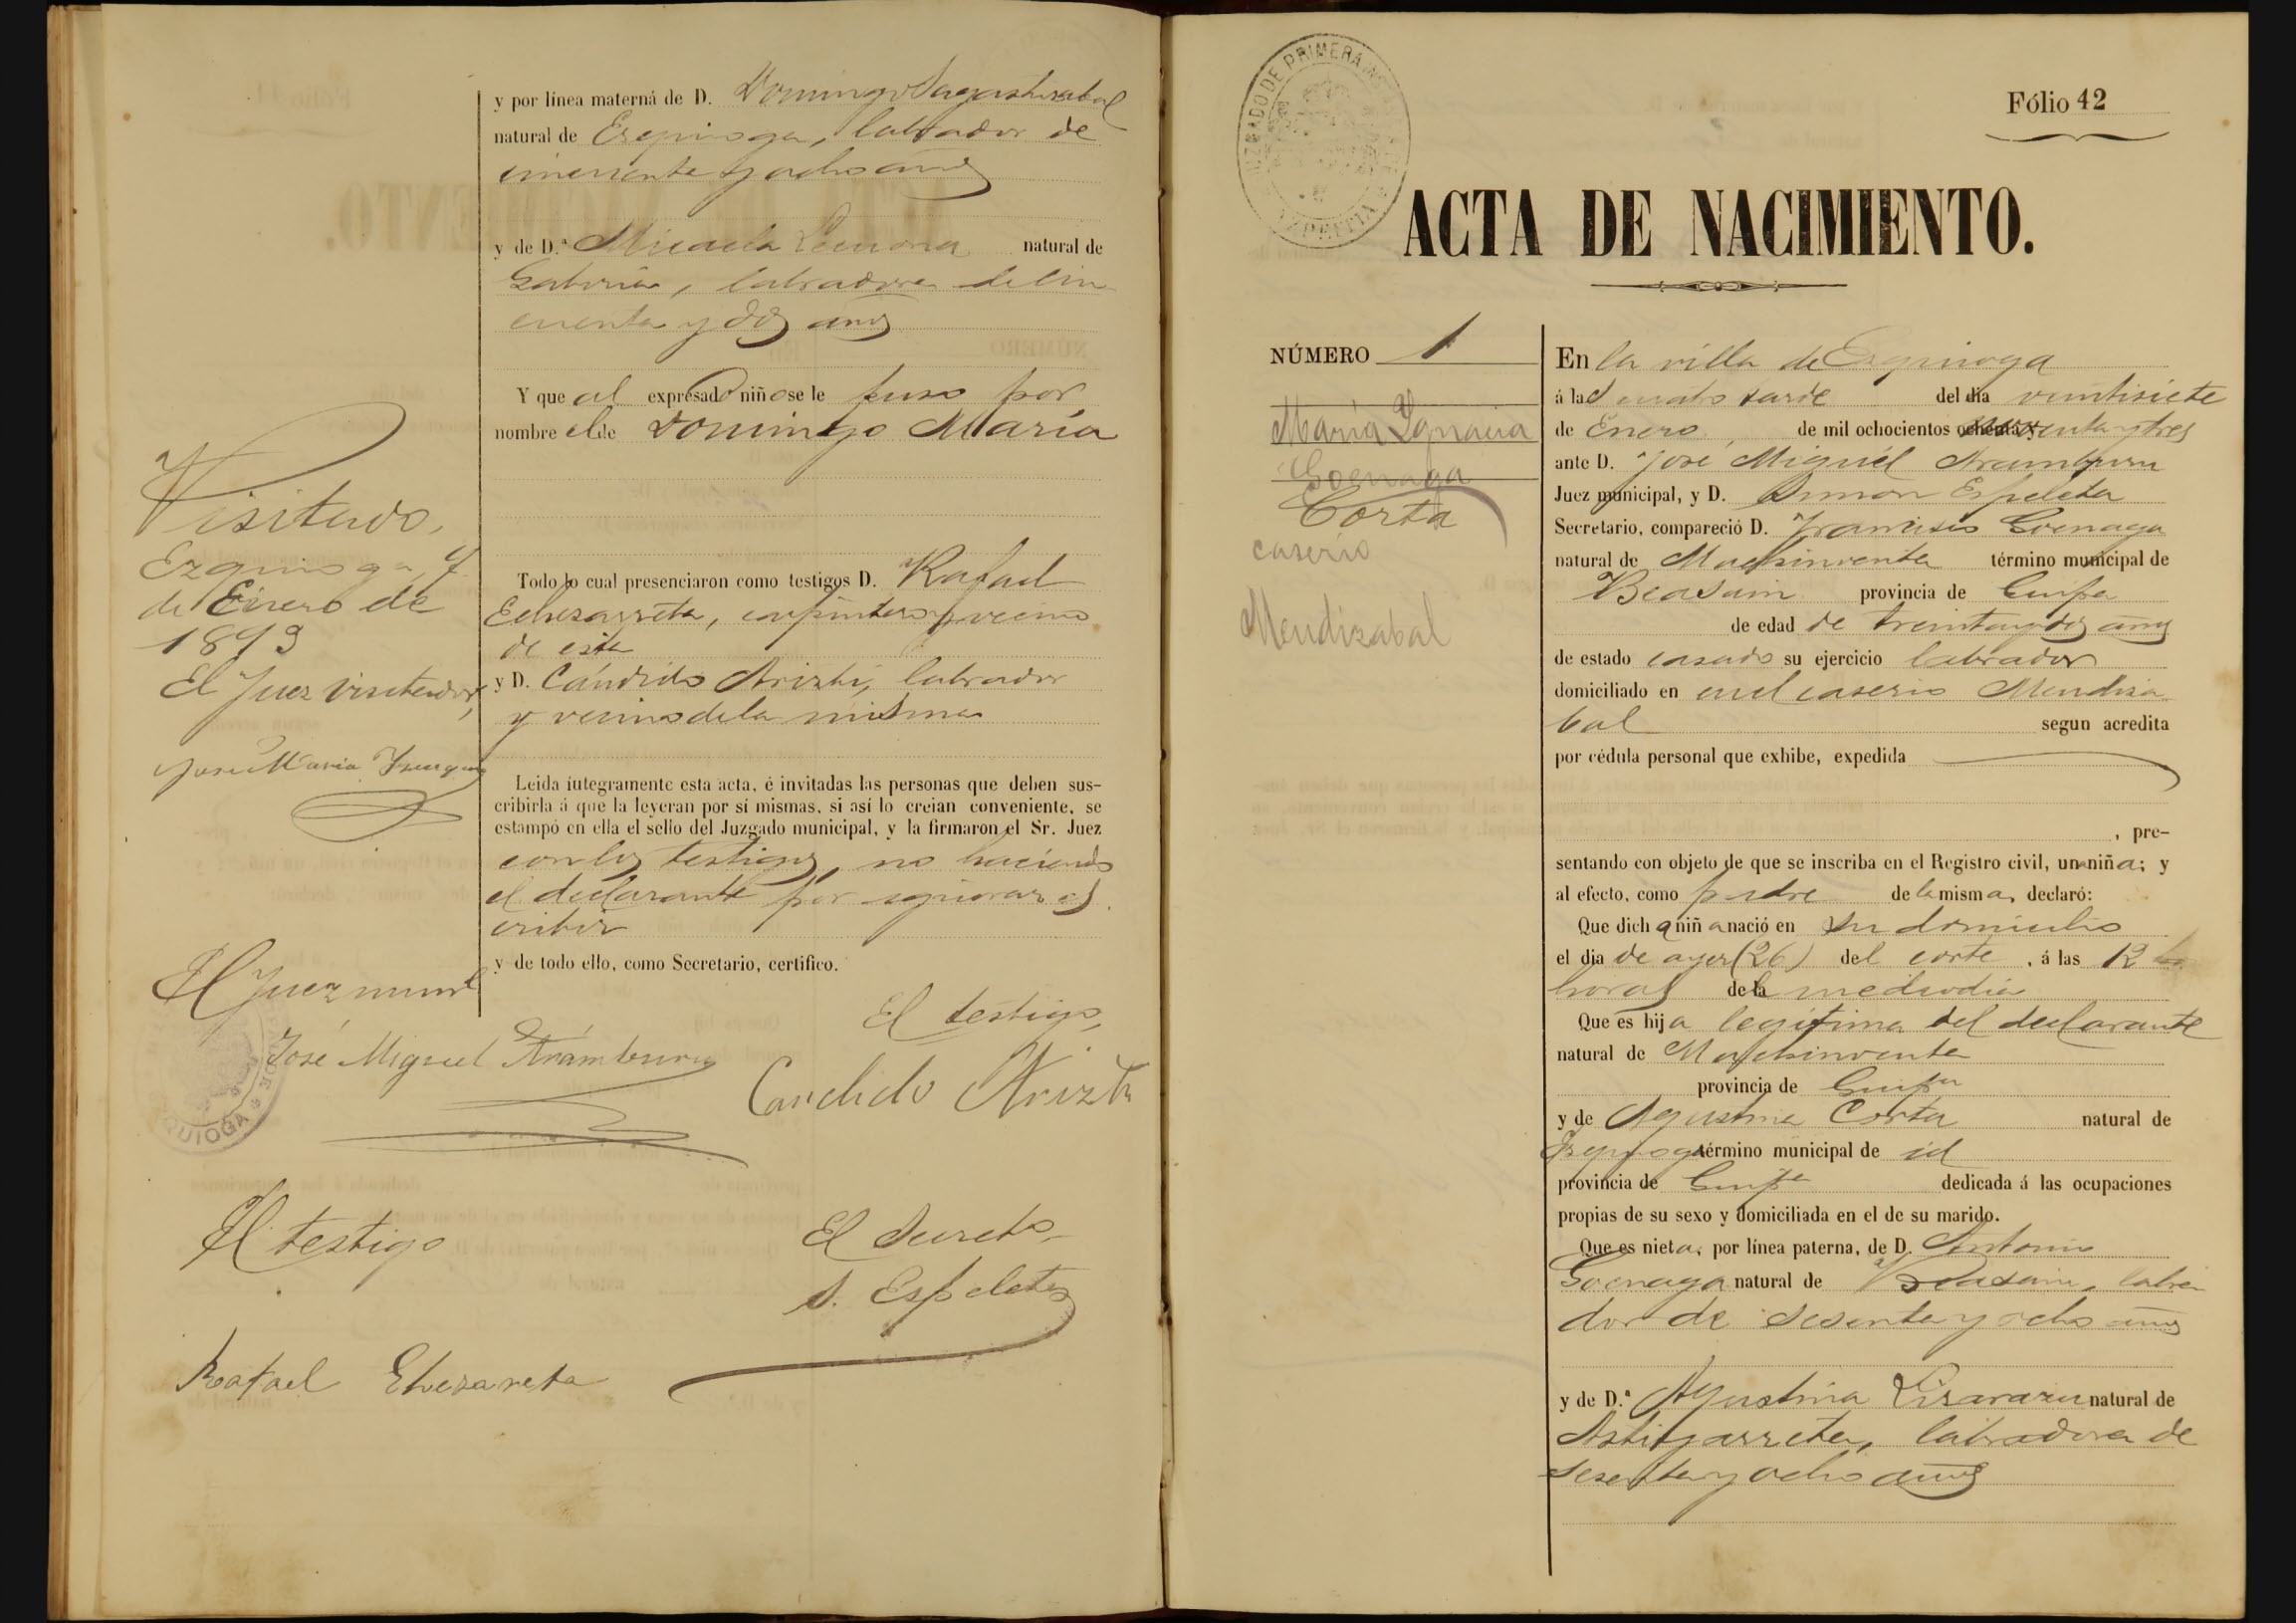 y por línea materna de D. Domingo Sagastizabal
natural de Ezquioga, labrador de
cincuenta y ocho años
y de D.ª Micaela Lecuona natural de
Gabiria, labradora de cin
cuenta y dos años
Y que al expresado niño se le puso por
nombre el de Domingo María
Todo lo cual presenciaron como testigos D. Rafael
Echezarreta, carpintero y vecino
de esta
y D. Cándido Arizti, labrador
y vecino de la misma
Leida íntegramente esta acta, é invitadas las personas que deben sus-
cribirla á que la leyeran por sí mismas, si así lo creian conveniente, se
estampó en ella el sello del Juzgado municipal, y la firmaron el Sr. Juez
con los testigos, no haciendo
el declarante por ignorar es
cribir
y de todo ello, como Secretario, certifico.
Visitado,
Ezquioga
de Enero de
1893
El Juez visitador,
José María
El Juez munl
José Miguel Arámburu
QUIOGA
El testigo,
Candido Arizti
El testigo
Rafael Ehezareta
El Secreto
S. Espeleta
JUZGADO DE PRIMERA INSTANCIA
AZPEITIA
Fólio 42
ACTA DE NACIMIENTO.
NÚMERO 1
María Ygnacia
Goenaga
Corta
caserio
Mendizabal
En la villa de Ezquioga
á las cuatro tarde del dia veintisiete
de Enero, de mil ochocientos noventa y tres
ante D. José Miguel Aramburu
Juez municipal, y D. Simón Espeleta
Secretario, compareció D. Francisco Goenaga
natural de Machinventa término municipal de
Beasain provincia de Guipa
de edad de treinta y dos años
de estado casado su ejercicio labrador
domiciliado en en el caserio Mendiza
bal segun acredita
por cédula personal que exhibe, expedida
, pre-
sentando con objeto de que se inscriba en el Registro civil, una niña; y
al efecto, como padre de la misma, declaró:
Que dicha niña nació en su domicilio
el dia de ayer (26) del corte, á las 12
horas del mediodia
Que es hija legítima del declarante
natural de Machinventa
provincia de Guipa
y de Agustina Corta natural de
Ezquioga término municipal de id
provincia de Guipa dedicada á las ocupaciones
propias de su sexo y domiciliada en el de su marido.
Que es nieta, por línea paterna, de D. Antonio
Goenaga natural de Beasain, labra
dor de sesenta y ocho años
y de D.ª Agustina Lizarazu natural de
Astigarreta, labradora de
sesenta y ocho años